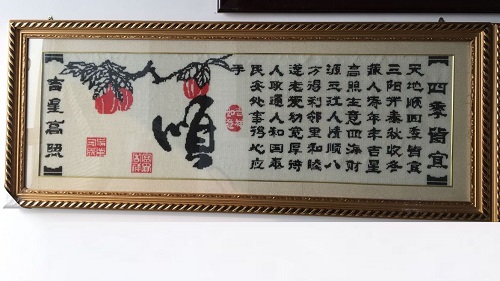 四季皆宜
天地順四季皆宜
三阳开泰秋收冬
藏人寿年丰吉星
高照生意四海财
源五江人情順八
方得利邻里和睦
遵老爱幼宽厚待
人政通人和国泰
民安处事得心应
手
順
吉星高照